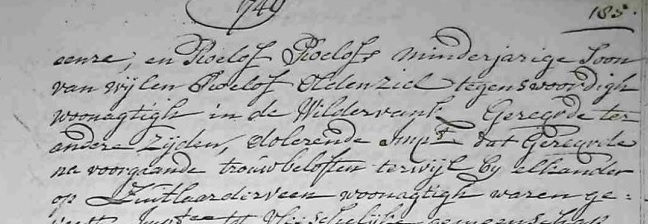 1749
185.
eenre, en Roelof Roelofs minderjarige Soon
van wijlen Roelof Oldenziel tegenswoordigh
woonagtigh in de Wildervank Gereqde ter
andere Zijden, dolerende Impt. dat Gereqde
na voorgaande trouwbeloften terwijl by elkander
op Zuitlaarderveen woonagtigh waren ge=
tot vleeschelijke gemeenschap